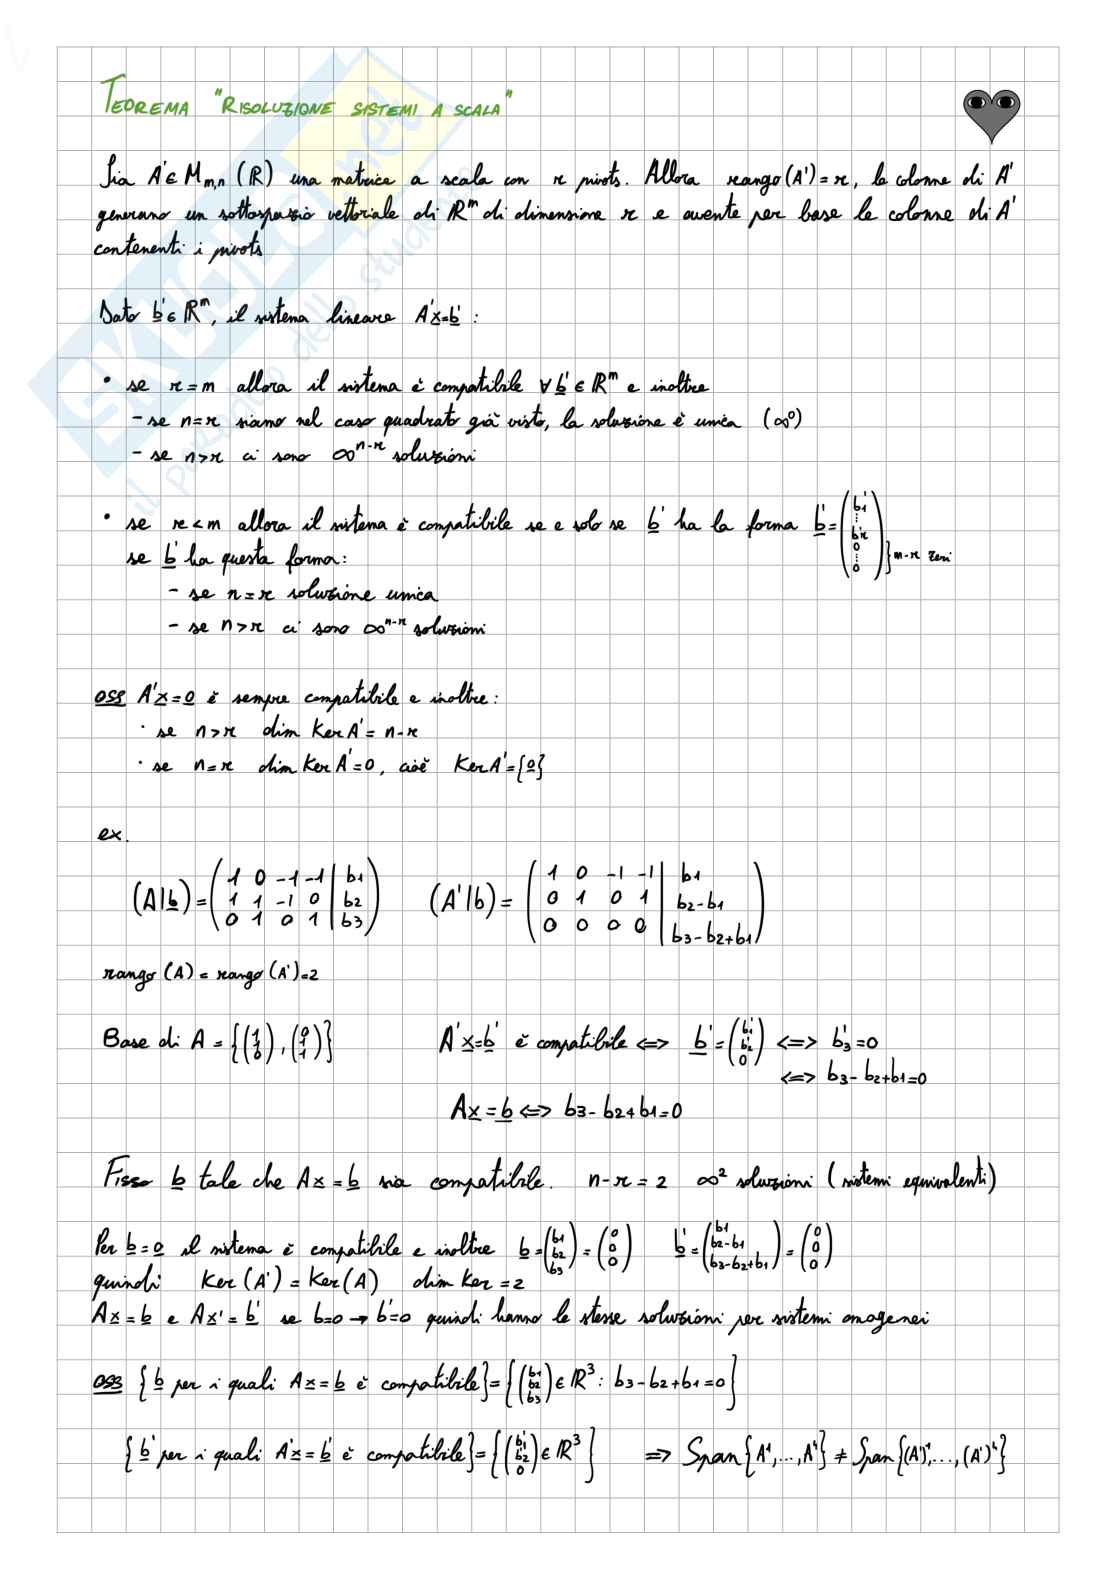 TEOREMA "RISOLUZIONE SISTEMI A SCALA"
Sia A'∈ Mm,n (ℝ) una matrice a scala con r pivots. Allora rango(A')=r, le colonne di A'
generano un sottospazio vettoriale di ℝᵐ di dimensione r e avente per base le colonne di A'
contenenti i pivots
Dato b'∈ ℝᵐ, il sistema lineare A'x=b' :
• se r=m allora il sistema è compatibile ∀ b' ∈ ℝᵐ e inoltre
- se n=r siamo nel caso quadrato già visto, la soluzione è unica (∞⁰)
- se n>r ci sono ∞ⁿ⁻ʳ soluzioni
• se r<m allora il sistema è compatibile se e solo se b' ha la forma b'=(b1' ⋮ b'r 0 ⋮ 0) } m-r zeri
se b' ha questa forma:
- se n=r soluzione unica
- se n>r ci sono ∞ⁿ⁻ʳ soluzioni
OSS A'x=0 è sempre compatibile e inoltre:
· se n>r dim Ker A' = n-r
· se n=r dim Ker A'=0, cioè Ker A'={0}
ex.
(A|b)=( 1 0 -1 -1 | b1 (A'|b)= ( 1 0 -1 -1 | b1
1 1 -1 0 | b2 0 1 0 1 | b2-b1
0 1 0 1 | b3 ) 0 0 0 0 | b3-b2+b1 )
rango (A) = rango (A')=2
Base di A = {(1 1 0), (0 1 1)} A'x=b' è compatibile <=> b'=(b1' b2' 0) <=> b3'=0
<=> b3-b2+b1=0
Ax=b <=> b3-b2+b1=0
Fisso b tale che Ax=b sia compatibile. n-r=2 ∞² soluzioni (sistemi equivalenti)
Per b=0 il sistema è compatibile e inoltre b=(b1 b2 b3)=(0 0 0) b'=(b1 b2-b1 b3-b2+b1)=(0 0 0)
quindi Ker(A')=Ker(A) dim Ker=2
Ax=b e Ax'=b' se b=0 → b'=0 quindi hanno le stesse soluzioni per sistemi omogenei
OSS {b per i quali Ax=b è compatibile}={(b1 b2 b3)∈ ℝ³: b3-b2+b1=0}
{b' per i quali A'x=b' è compatibile}={(b1' b2' 0)∈ ℝ³} => Span{A¹,...,A⁴} ≠ Span{(A')¹,...,(A')⁴}
SKUOLA.net
il paradiso dello studente